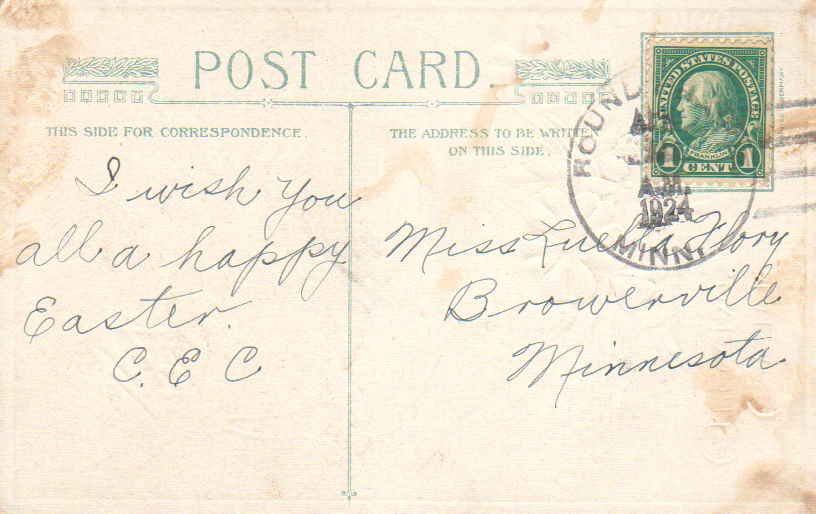 POST CARD
THIS SIDE FOR CORRESPONDENCE.
THE ADDRESS TO BE WRITTEN
ON THIS SIDE.
UNITED STATES POSTAGE
FRANKLIN
1 CENT 1
ROUND
A.M.
1924
MINN.
I wish you
all a happy
Easter.
C. E C
Miss Luella Flory
Browerville
Minnesota